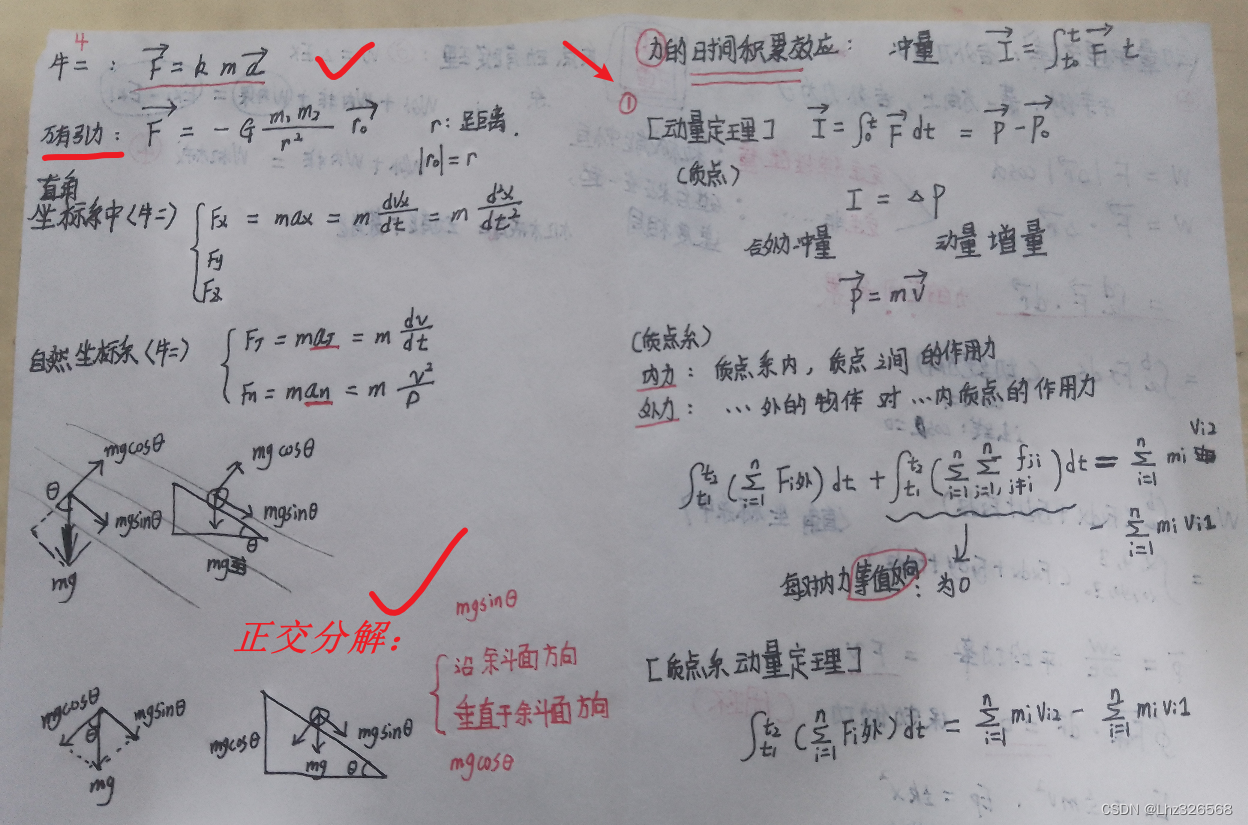 4
牛二： F = k m a
万有引力： F = - G m₁m₂/r² r₀ r：距离.
|r₀| = r
直角
坐标系中〈牛二〉 { Fx = max = m dvx/dt = m d²x/dt²
Fy
Fz
自然坐标系〈牛二〉 { Fτ = maτ = m dv/dt
Fn = man = m v²/ρ
mgcosθ
θ
mgsinθ
mg
mgcosθ
mgsinθ
θ
mg
正交分解：
mgsinθ
{ 沿余斗面方向
垂直于余斗面方向
mgcosθ
mgcosθ
θ
mgsinθ
mg
mgcosθ
mgsinθ
mg
θ
①
力的时间积累效应： 冲量 I = ∫t₀^t F t
[动量定理] I = ∫₀^t F dt = P - P₀
(质点)
I = △P
合外力冲量 动量增量
P = mv
(质点系)
内力：质点系内，质点之间的作用力
外力：…外的物体对…内质点的作用力
∫t₁^t₂ (∑i=1^n Fi外) dt + ∫t₁^t₂ (∑i=1^n ∑j=1,j≠i^n fji) dt = ∑i=1^n mi Vi2
- ∑i=1^n mi Vi1
每对内力等值反向：为0
[质点系动量定理]
∫t₁^t₂ (∑i=1^n Fi外) dt = ∑i=1^n mi Vi2 - ∑i=1^n mi Vi1
CSDN @Lhz326568